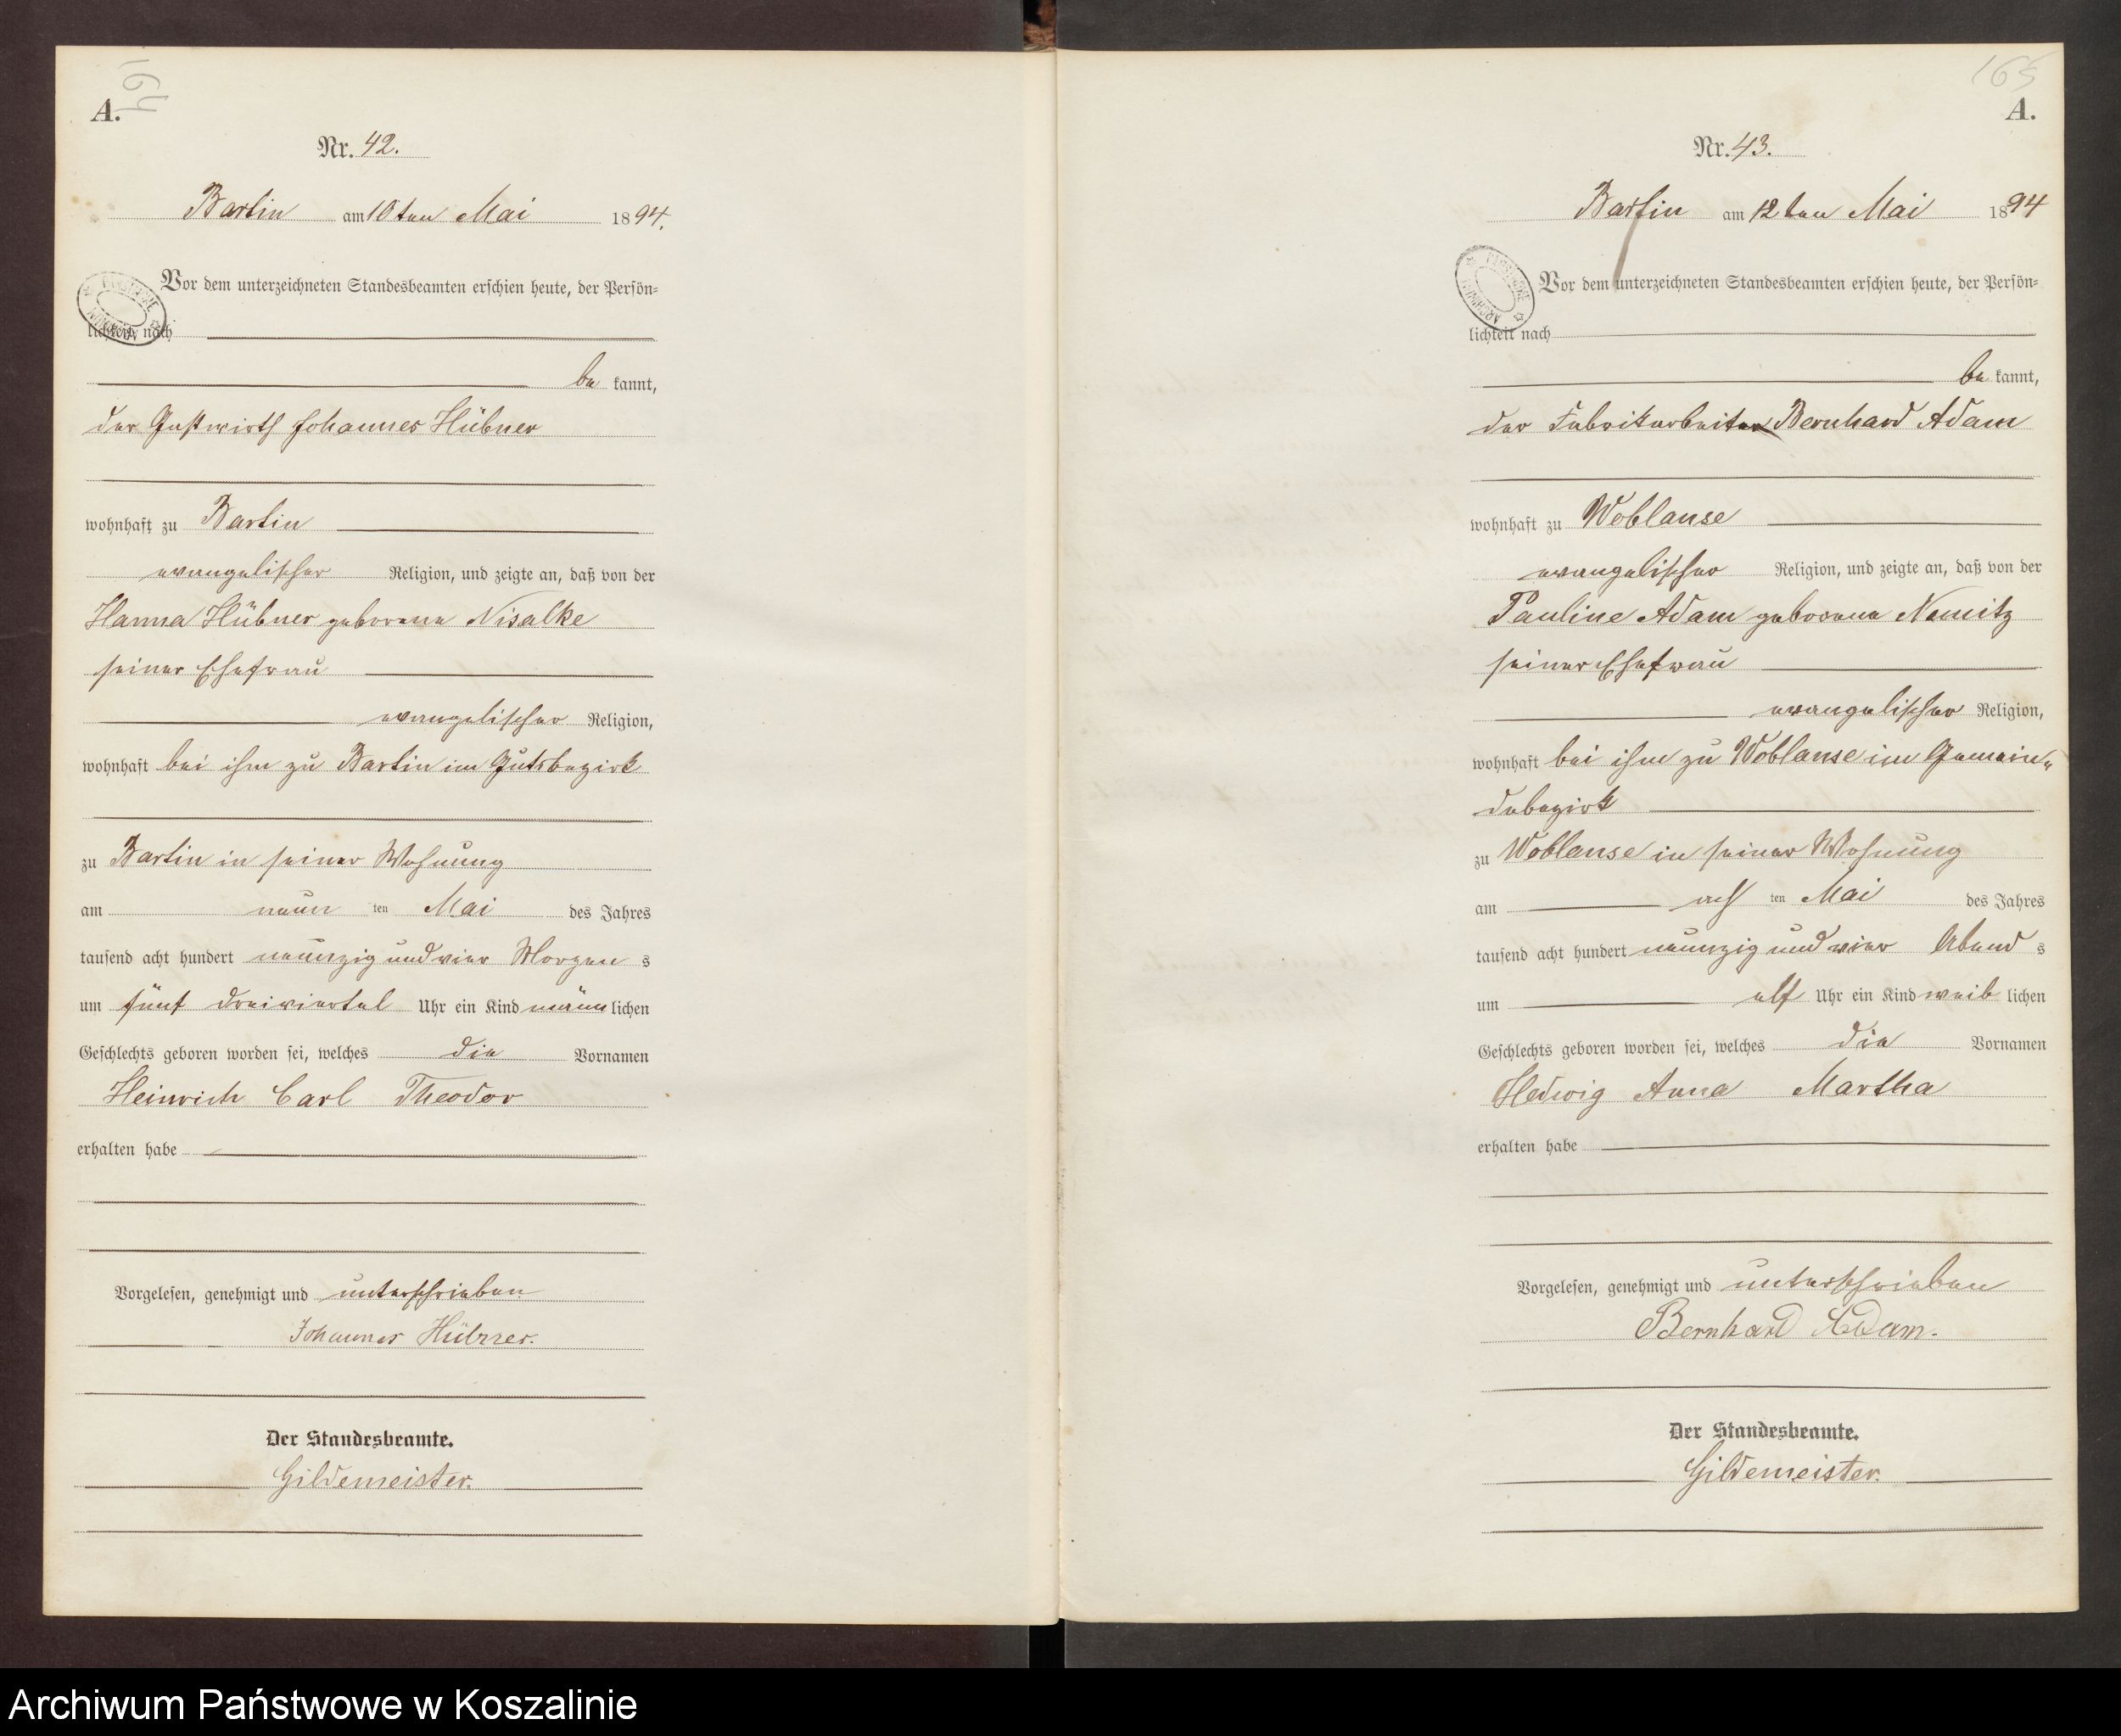 164
A.
Nr. 42.
Bartin am 10ten Mai 1894.
Vor dem unterzeichneten Standesbeamten erschien heute, der Persön=
lichkeit nach
be kannt,
der Gastwirth Johannes Hübner
wohnhaft zu Bartin
evangelischer Religion, und zeigte an, daß von der
Hanna Hübner geborene Nisalke
seiner Ehefrau
evangelischer Religion,
wohnhaft bei ihm zu Bartin im Gutsbezirk
zu Bartin in seiner Wohnung
am neun ten Mai des Jahres
tausend acht hundert neunzig und vier Morgen s
um fünf dreiviertel Uhr ein Kind männ lichen
Geschlechts geboren worden sei, welches die Vornamen
Heinrich Carl Theodor
erhalten habe
Vorgelesen, genehmigt und unterschrieben
Johannes Hübner.
Der Standesbeamte.
Gildemeister.
165
A.
Nr. 43.
Bartin am 12ten Mai 1894
Vor dem unterzeichneten Standesbeamten erschien heute, der Persön=
lichkeit nach
be kannt,
der Fabrikarbeiter Bernhard Adam
wohnhaft zu Woblanse
evangelischer Religion, und zeigte an, daß von der
Pauline Adam geborene Nemitz
seiner Ehefrau
evangelischer Religion,
wohnhaft bei ihm zu Woblanse im Gemein„
debezirk
zu Woblanse in seiner Wohnung
am ach ten Mai des Jahres
tausend acht hundert neunzig und vier Abend s
um elf Uhr ein Kind weib lichen
Geschlechts geboren worden sei, welches die Vornamen
Hedwig Anna Martha
erhalten habe
Vorgelesen, genehmigt und unterschrieben
Bernhard Adam.
Der Standesbeamte.
Gildemeister.
Archiwum Państwowe w Koszalinie